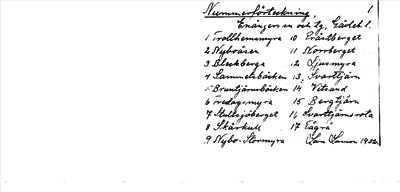 Nummerförteckning, 1.
Enångers m och Lg, Gävleb l.
1 Trollhemsmyra 10 Prästberget
2 Nyboåsen 11 Norrberget
3 Bleckberga 12 Ljusmyra
4 Sammelsbäcken 13. Svarttjärn
5 Bruntjärnsbäcken 14 Vitsand
6 Fredagsmyra 15 Bergtjärn
7 Stultsjöberget 16 Svarttjärnsrota
8 Skärkull 17 Tågrå
9 Nybo-Stormyra 1932.